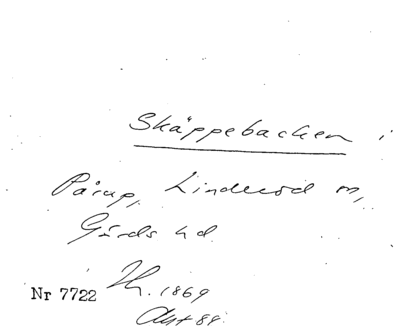 Skäppebacken i
Pårup, Linderöd sn,
Gärds hd.
Nr 7722 Th. 1869
Avst 89.